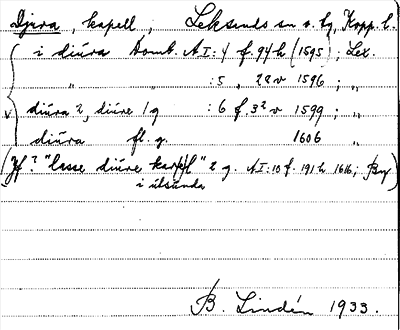 Djura, kapell, Leksands sn o. tg, Kopp. l.
i diúra Domb. AI:4 f. 94 h (1595); Lex.
" " :5 " 22 v 1596 ; "
diúra 2, diúre 1 g :6 f. 32 v 1599 ; "
diúra fl. g. 1606 "
(Jf? "lasse diúre karsfl" 2 g. AI:10 f. 191 h 1616; By)
i úlsúnda
B. Lindén 1933.